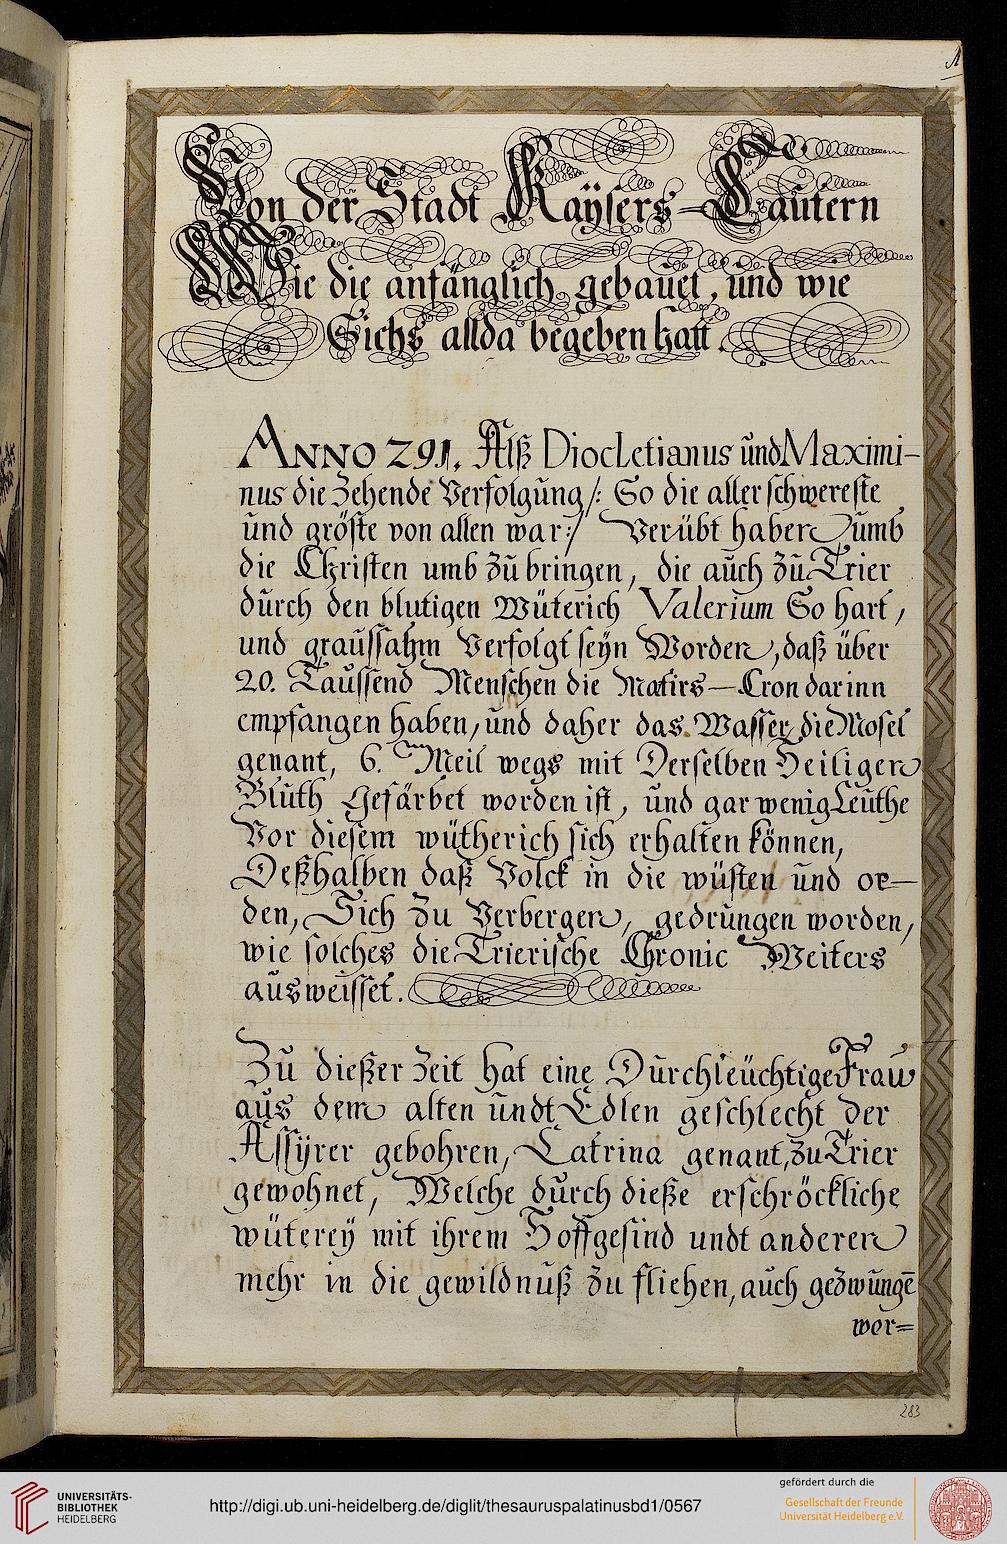 Von der Stadt Kaÿsers-Lautern
Wie die anfänglich gebauet, und wie
Sichs allda begeben hatt.
ANNO 291. Alß Diocletianus und Maximi-
nus die Zehende Verfolgung /: So die aller schwereste
und gröste von allen war :/ Verübt haben umb
die Christen umb zu bringen, die auch zu Trier
durch den blutigen Wüterich Valerium So hart,
und graussahm Verfolgt seÿn Worden, daß über
20. Taussend Menschen die Matirs-Cron darinn
empfangen haben, und daher das Wasser, die Mosel
genant, 6. Meil wegs mit Derselben Heiligen
Bluth Gefärbet worden ist, und gar wenig Leuthe
Vor diesem wütherich sich erhalten können,
Deßhalben daß Volck in die wüsten und oe-
den, Sich zu Verbergen, gedrungen worden,
wie solches die Trierische Chronic Weiters
ausweisset.
Zu dießer Zeit hat eine Durchleüchtige Frau
aus dem alten undt Edlen geschlecht der
Assÿrer gebohren, Catrina genant, zu Trier
gewohnet, Welche durch dieße erschröckliche
wütereÿ mit ihrem Hoffgesind undt anderen
mehr in die gewildnuß zu fliehen, auch gezwungē
wor=
283
UNIVERSITÄTS-
BIBLIOTHEK
HEIDELBERG
http://digi.ub.uni-heidelberg.de/diglit/thesauruspalatinusbd1/0567
gefördert durch die
Gesellschaft der Freunde
Universität Heidelberg e.V.